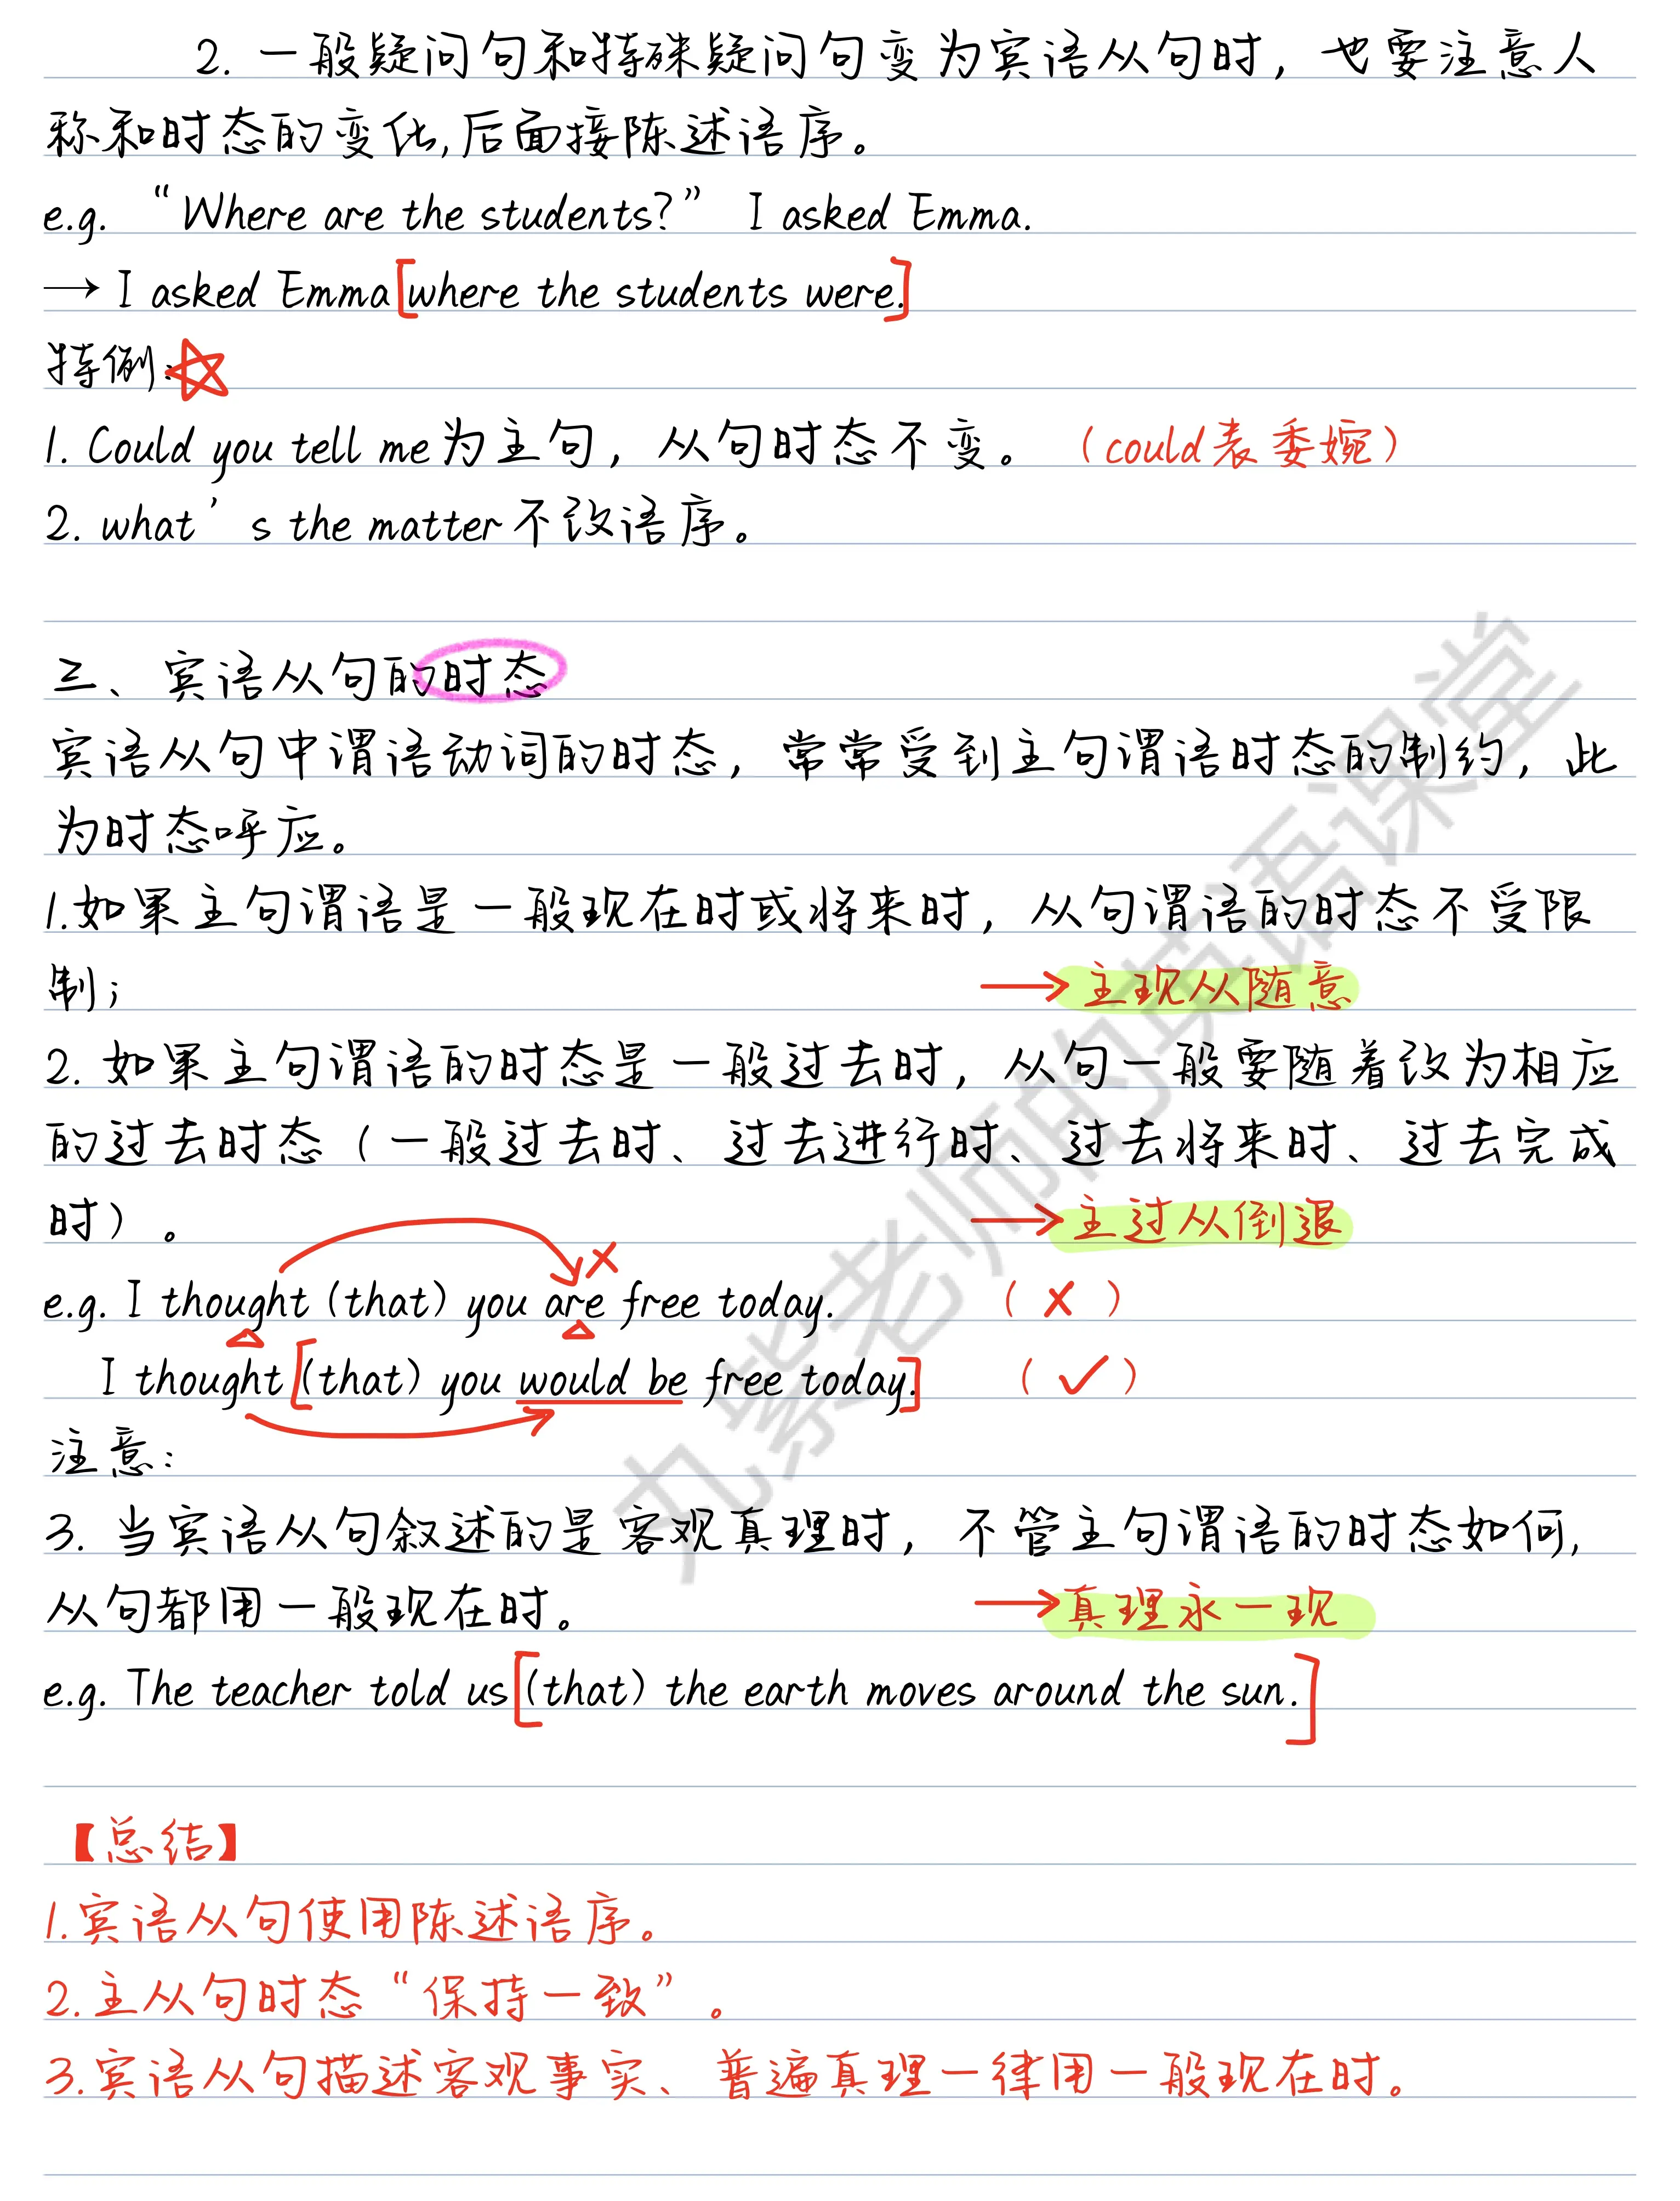 2. 一般疑问句和特殊疑问句变为宾语从句时，也要注意人
称和时态的变化,后面接陈述语序。
e.g. “Where are the students?” I asked Emma.
→ I asked Emma [where the students were.]
特例：☆
1. Could you tell me为主句，从句时态不变。（could表委婉）
2. what’s the matter不改语序。
三、宾语从句的时态
宾语从句中谓语动词的时态，常常受到主句谓语时态的制约，此
为时态呼应。
1.如果主句谓语是一般现在时或将来时，从句谓语的时态不受限
制； →主现从随意
2. 如果主句谓语的时态是一般过去时，从句一般要随着改为相应
的过去时态（一般过去时、过去进行时、过去将来时、过去完成
时）。 →主过从倒退
e.g. I thought (that) you are free today. （×）
I thought [(that) you would be free today.] （✓）
注意：
3. 当宾语从句叙述的是客观真理时，不管主句谓语的时态如何，
从句都用一般现在时。 →真理永一现
e.g. The teacher told us [(that) the earth moves around the sun.]
【总结】
1.宾语从句使用陈述语序。
2.主从句时态“保持一致”。
3.宾语从句描述客观事实、普遍真理一律用一般现在时。
九紫老师的英语课堂